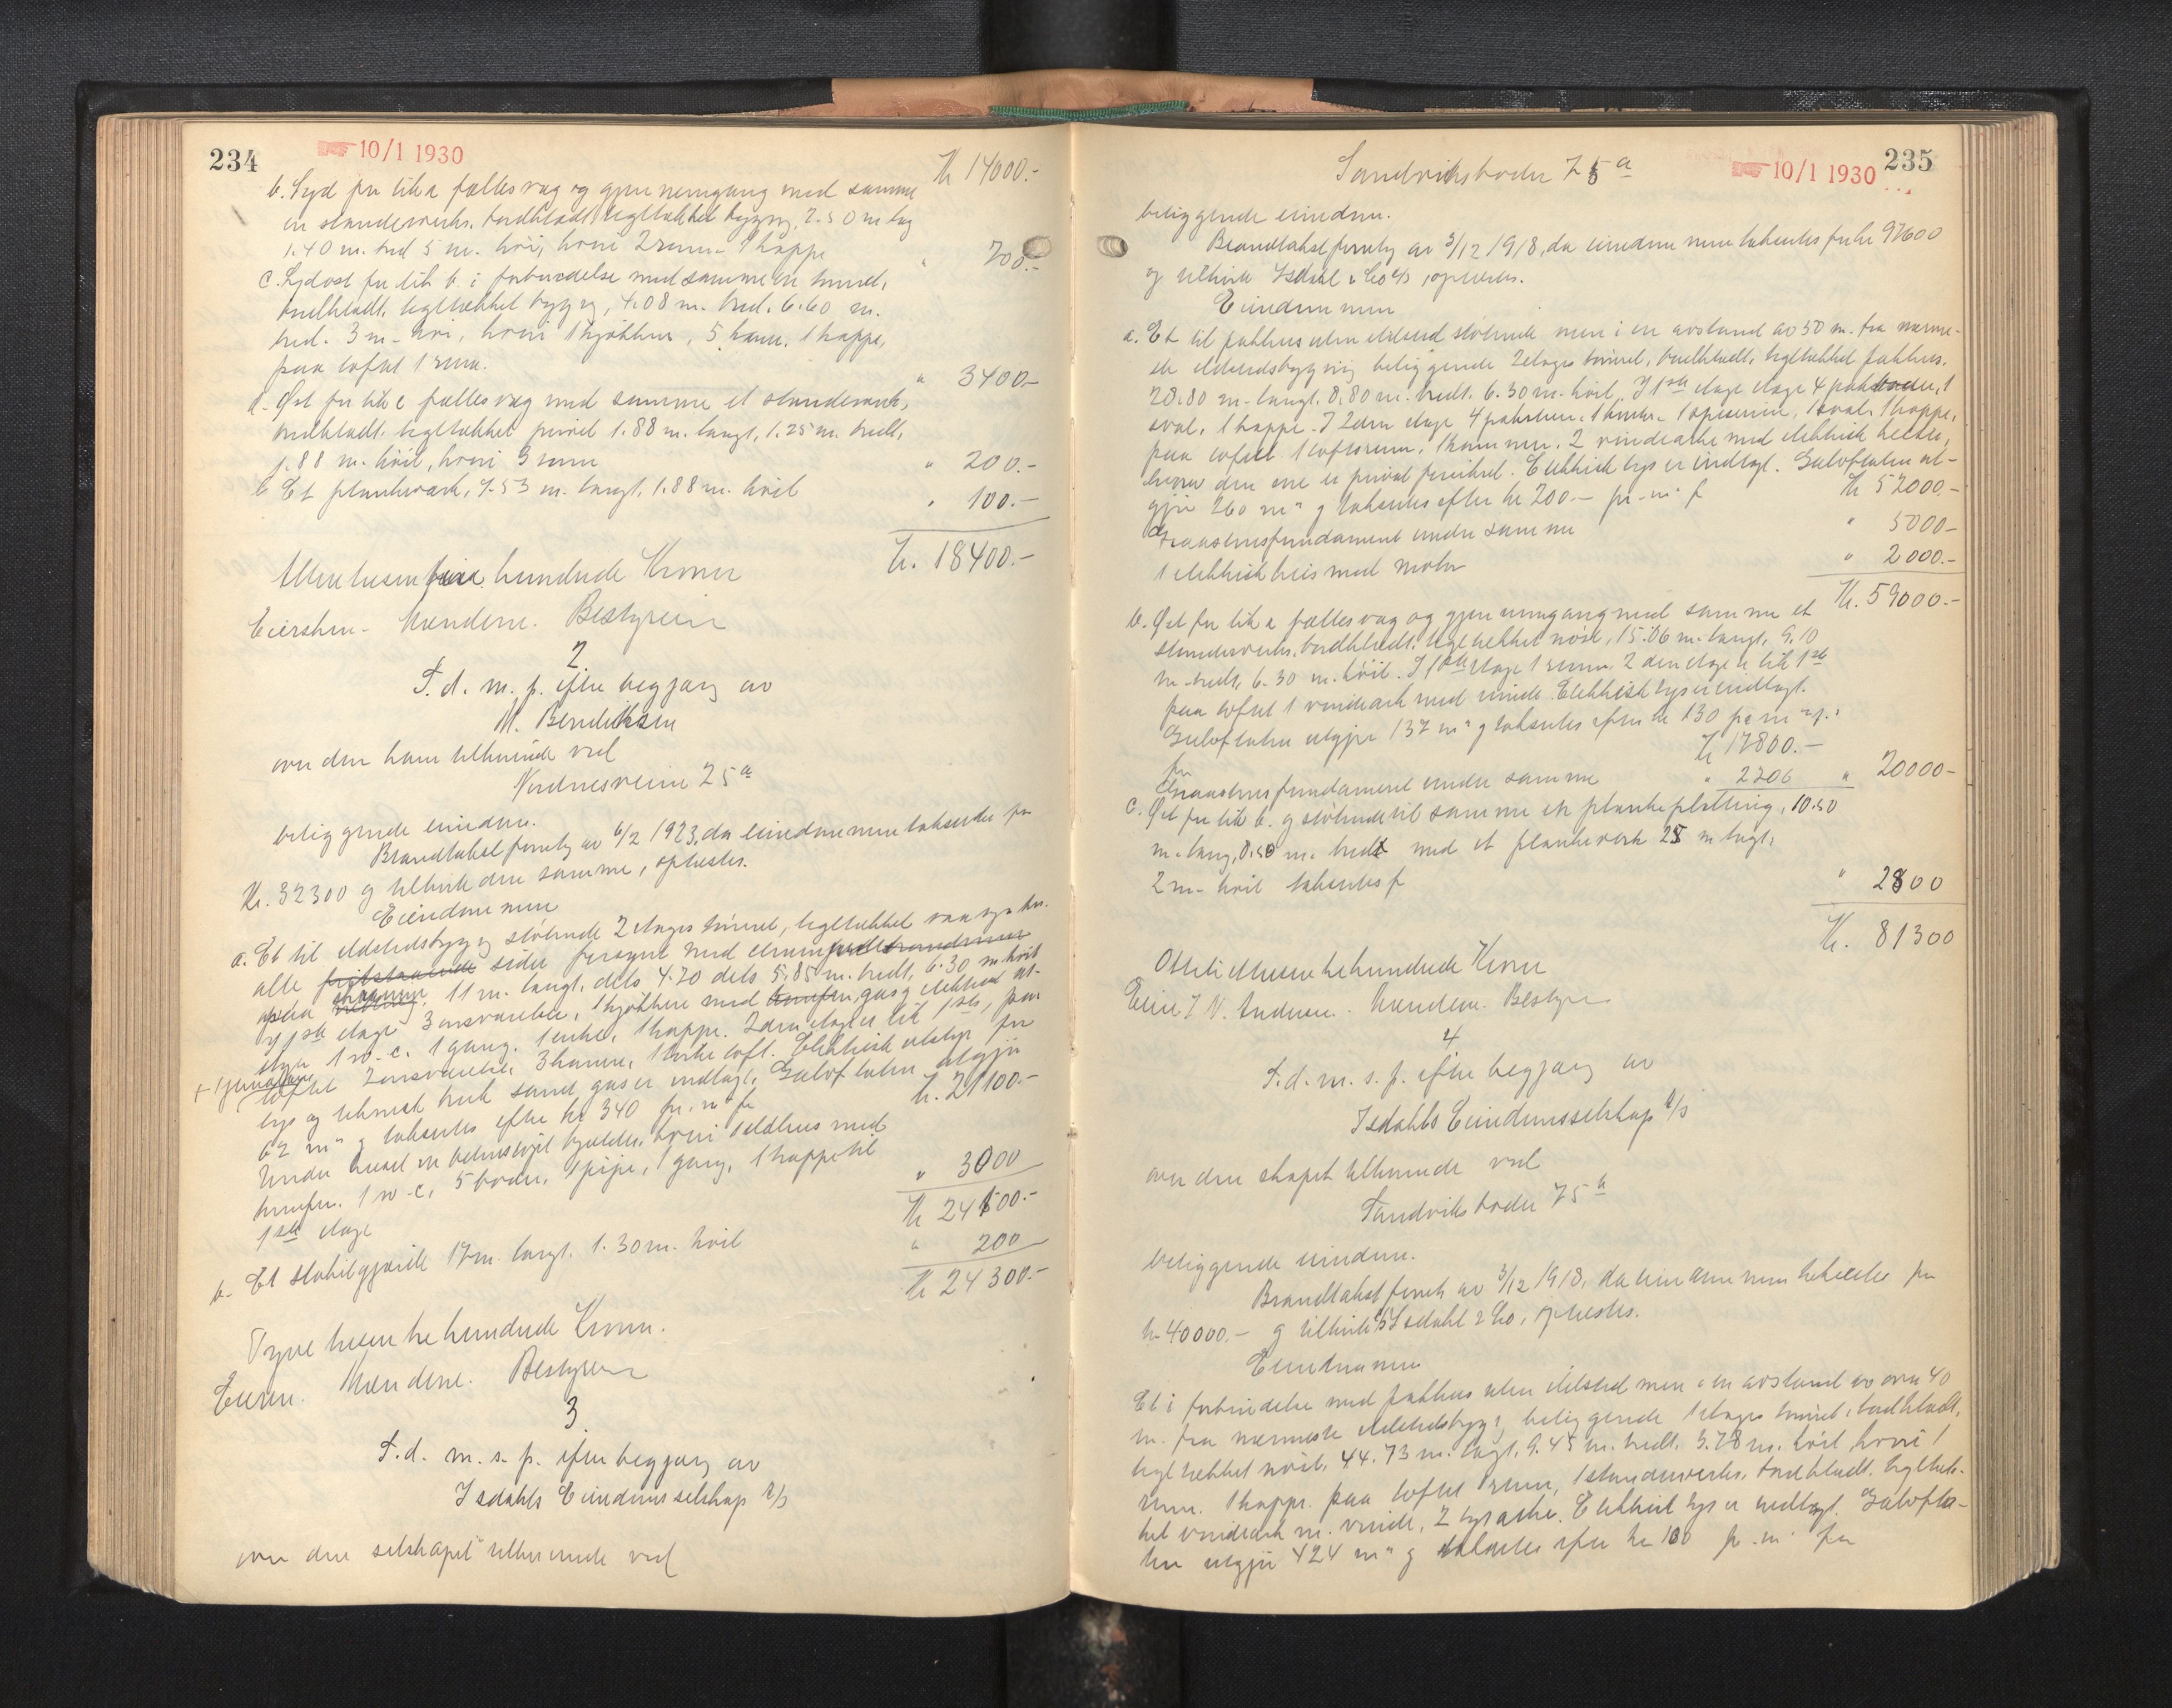 234
10/1 1930
Kr 14000.-
b. Syd for lit a fællesvæg og gjennemgang med samme
en stenderverks. bordklædt tegltækket bygng, 2.50 m lag
1.40 m. bred 5 m. höi, hvori 2 rum - 1 trappe
" 700.-
c. Sydost for lit b. i forbindelse med samme en tømret,
bordklædt, tegltækket bygng, 7.08 m. bred. 6.60 m.
bred. 3 m - höi, hvori 1 kjøkken, 5 kam. 1 trappe,
paa loftet 1 rum.
" 3400.-
d. Øst for lit c fællesvæg med samme et stenderverk,
bordklædt. tegltækket privet 1.88 m. langt, 1.25 m. bredt,
1.88 m. höit, hvori 3 rum
" 200.-
e Et plankeverk, 7.53 m. langt, 1.88 m. höit
" 100.-
Kr. 18400.-
Attentusen fire hundrede Kroner
Eiersken. Mændene. Bestyreren
2
F. d. m. p. efter begjæring av
M. Bendiksen
over den ham tilhørende ved
Nordnesveien 25 a
beliggende eiendom.
Brandtakst forretn av 6/2 1923, da eiendommen takseredes for
Kr. 32300 og tilhørte den samme, oplæstes.
Eiendommen
a. Et til ildstedsbygng støtende 2 etages tømret, tegltækket vaaningshus.
alle fritstaaende sider forsynt med
11 m. langt, dels 4.70 dels 5.85 m. bredt, 6.30 m höit
I 1ste etage 3 onsværelser, 1 kjøkken med komfur, gas og elektrisk
1 w.c. 1 gang. 1 entre, 1 trappe. 2den etage er lik 1ste, paa
loftet 2 onsværelser, 3 kamre, 1 tørke loft. Elektrisk utstyr for
lys og teknisk bruk samt gas er indlagt. Gulvflaten utgjør
62 m² og takseres efter kr 340 pr. m² for
Kr. 21100.-
Under huset en betonstøpt kjelder, hvori 1 ildhus med
komfur. 1 w.c, 5 boder, 1 pipe, 1 gang, 1 trappe til
1ste etage
" 3000
Kr 24100.-
b. Et stakitgjærde 17 m. langt. 1.30 m. höit
" 200
Kr 24300.-
Tyve tusen tre hundrede Kroner.
Eieren. Mændene. Bestyreren
3
F.d. m. s. p. efter begjæring av
Isdahls Eiendomsselskap A/S
over den selskapet tilhørende ved
235
10/1 1930
Sandviksboder 75 a
beliggende eiendom.
Brandtakst forretng av 3/12 1918, da eiendommen takseredes for kr 97600
og tilhørte Isdahl & Co A/S, oplæstes.
Eiendommen
a. Et til pakhus uten ildsted støtende men i en avstand av 50 m. fra nærme-
ste ildstedsbygning beliggende 2 etages tømret, bordklædt, tegltækket pakhus.
28.80 m. langt. 8.80 m. bredt. 6.30 m. höit. I 1ste etage 4 pakboder, 1
sval, 1 trappe. I 2den etage 4 pakrum, 1 kontor. 1 spiserum, 1 sval, 1 trappe.
paa loftet 1 loftsrum, 1 kammer. 2 vindearke med elektrisk heise,
hvorav den ene er privat forsikret. Elektrisk lys er indlagt. Gulvflaten ut-
gjør 260 m² og takseres efter kr 200.- pr. m² f
Kr 52000.-
Graastensfundament under samme
" 5000-
1 elektrisk heis med motor
" 2000.-
Kr. 59000.-
b. Øst for lit a fællesvæg og gjennemgang med samme et
stenderverks, bordklædt. tegltækket nöst, 15.06 m. langt, 9.10
m. bredt, 6.30 m. höit. I 1ste etage 1 rum, 2 den etage er lik 1ste
paa loftet 1 vindeark med vinde. Elektrisk lys er indlagt.
Gulvflaten utgjør 137 m² og takseres efter kr 130 pr m² f.
Kr 17800.-
Graastensfundament under samme
" 2200
" 20000-
c. Øst for lit b. og støtende til samme en plankeplatting, 10.50
m. lang, 8.50 m. bredt med et plankeverk 25 m lagt,
2 m. höit takseres f
" 2300
Kr. 81300
Otti ettusen trehundrede Kroner
Eier J V. Andersen. Mændene. Bestyrer
4
F.d. m. s. p. efter begjæring av
Isdahls Eiendomsselskap A/S
over den skapet tilhørende ved
Sandviksboder 75 b
beliggende eiendom.
Brandtakst forretn av 3/12 1918, da eiendommen takseredes for
kr 40000.- og tilhørte A/S Isdahl & Co, oplæstes.
Eiendommen
Et i forbindelse med pakhus uten ildsted men i en avstand av over 40
m. fra nærmeste ildstedsbygng beliggende 1 etages tømret, bordklædt,
tegltækket nöst, 44.73 m. lagt, 9.45 m. bredt. 3.78 m. höit, hvori 1
rum. 1 trappe. paa loftet 1 rum, 1 stenderverks, bordklædt. tegltæk-
ket vindeark m. vinde, 2 lysarke. Elektrisk lys er indlagt. Gulvfla-
ten utgjør 424 m² og takseres efter kr 100 pr. m² for